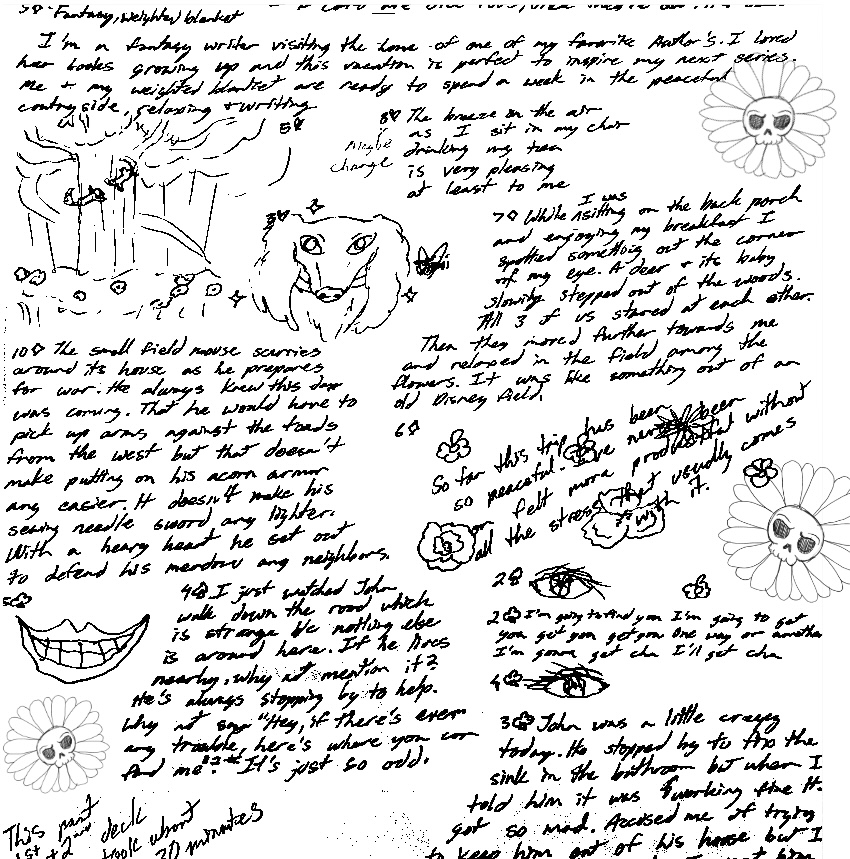 5◊ Fantasy, weighted blanket
I'm a fantasy writer visiting the home of one of my favorite Author's. I loved
her books growing up and this vacation is perfect to inspire my next series.
Me + my weighted blanket are ready to spend a week in the peaceful
countryside, relaxing + writing
5♡
8♡ The breeze in the air
as I sit in my chair
drinking my tea
is very pleasing
at least to me
Maybe
change
3♡
2
7◊ While I was sitting on the back porch
and enjoying my breakfast I
spotted something out the corner
of my eye. A deer + its baby
slowly stepped out of the woods.
All 3 of us stared at each other.
Then they moved further towards me
and relaxed in the field among the
flowers. It was like something out of an
old Disney field.
10◊ The small field mouse scurries
around its house as he prepares
for war. He always knew this day
was coming. That he would have to
pick up arms against the toads
from the west but that doesn't
make putting on his acorn armor
any easier. It doesn't make his
sewing needle sword any lighter.
With a heavy heart he set out
to defend his meadow and neighbors.
6◊
So far this trip has been
so peaceful. I've never been
or felt more productful without
all the stress that usually comes
with it.
5♧
4♧ I just watched John
walk down the road which
is strange bc nothing else
is around here. If he lives
nearby, why not mention it?
He's always stopping by to help.
Why not say "Hey, if there's ever
any trouble, here's where you can
find me"? It's just so odd.
2♧
2♧ I'm going to find you I'm going to get
you get you get you One way or another
I'm gonna get cha I'll get cha
4♧
3♧ John was a little crazy
today. He stopped by to fix the
sink in the bathroom but when I
told him it was working fine it.
got so mad. Accused me of trying
to keep him out of his house but I
This part
1st + 2nd deck
took about
30 minutes